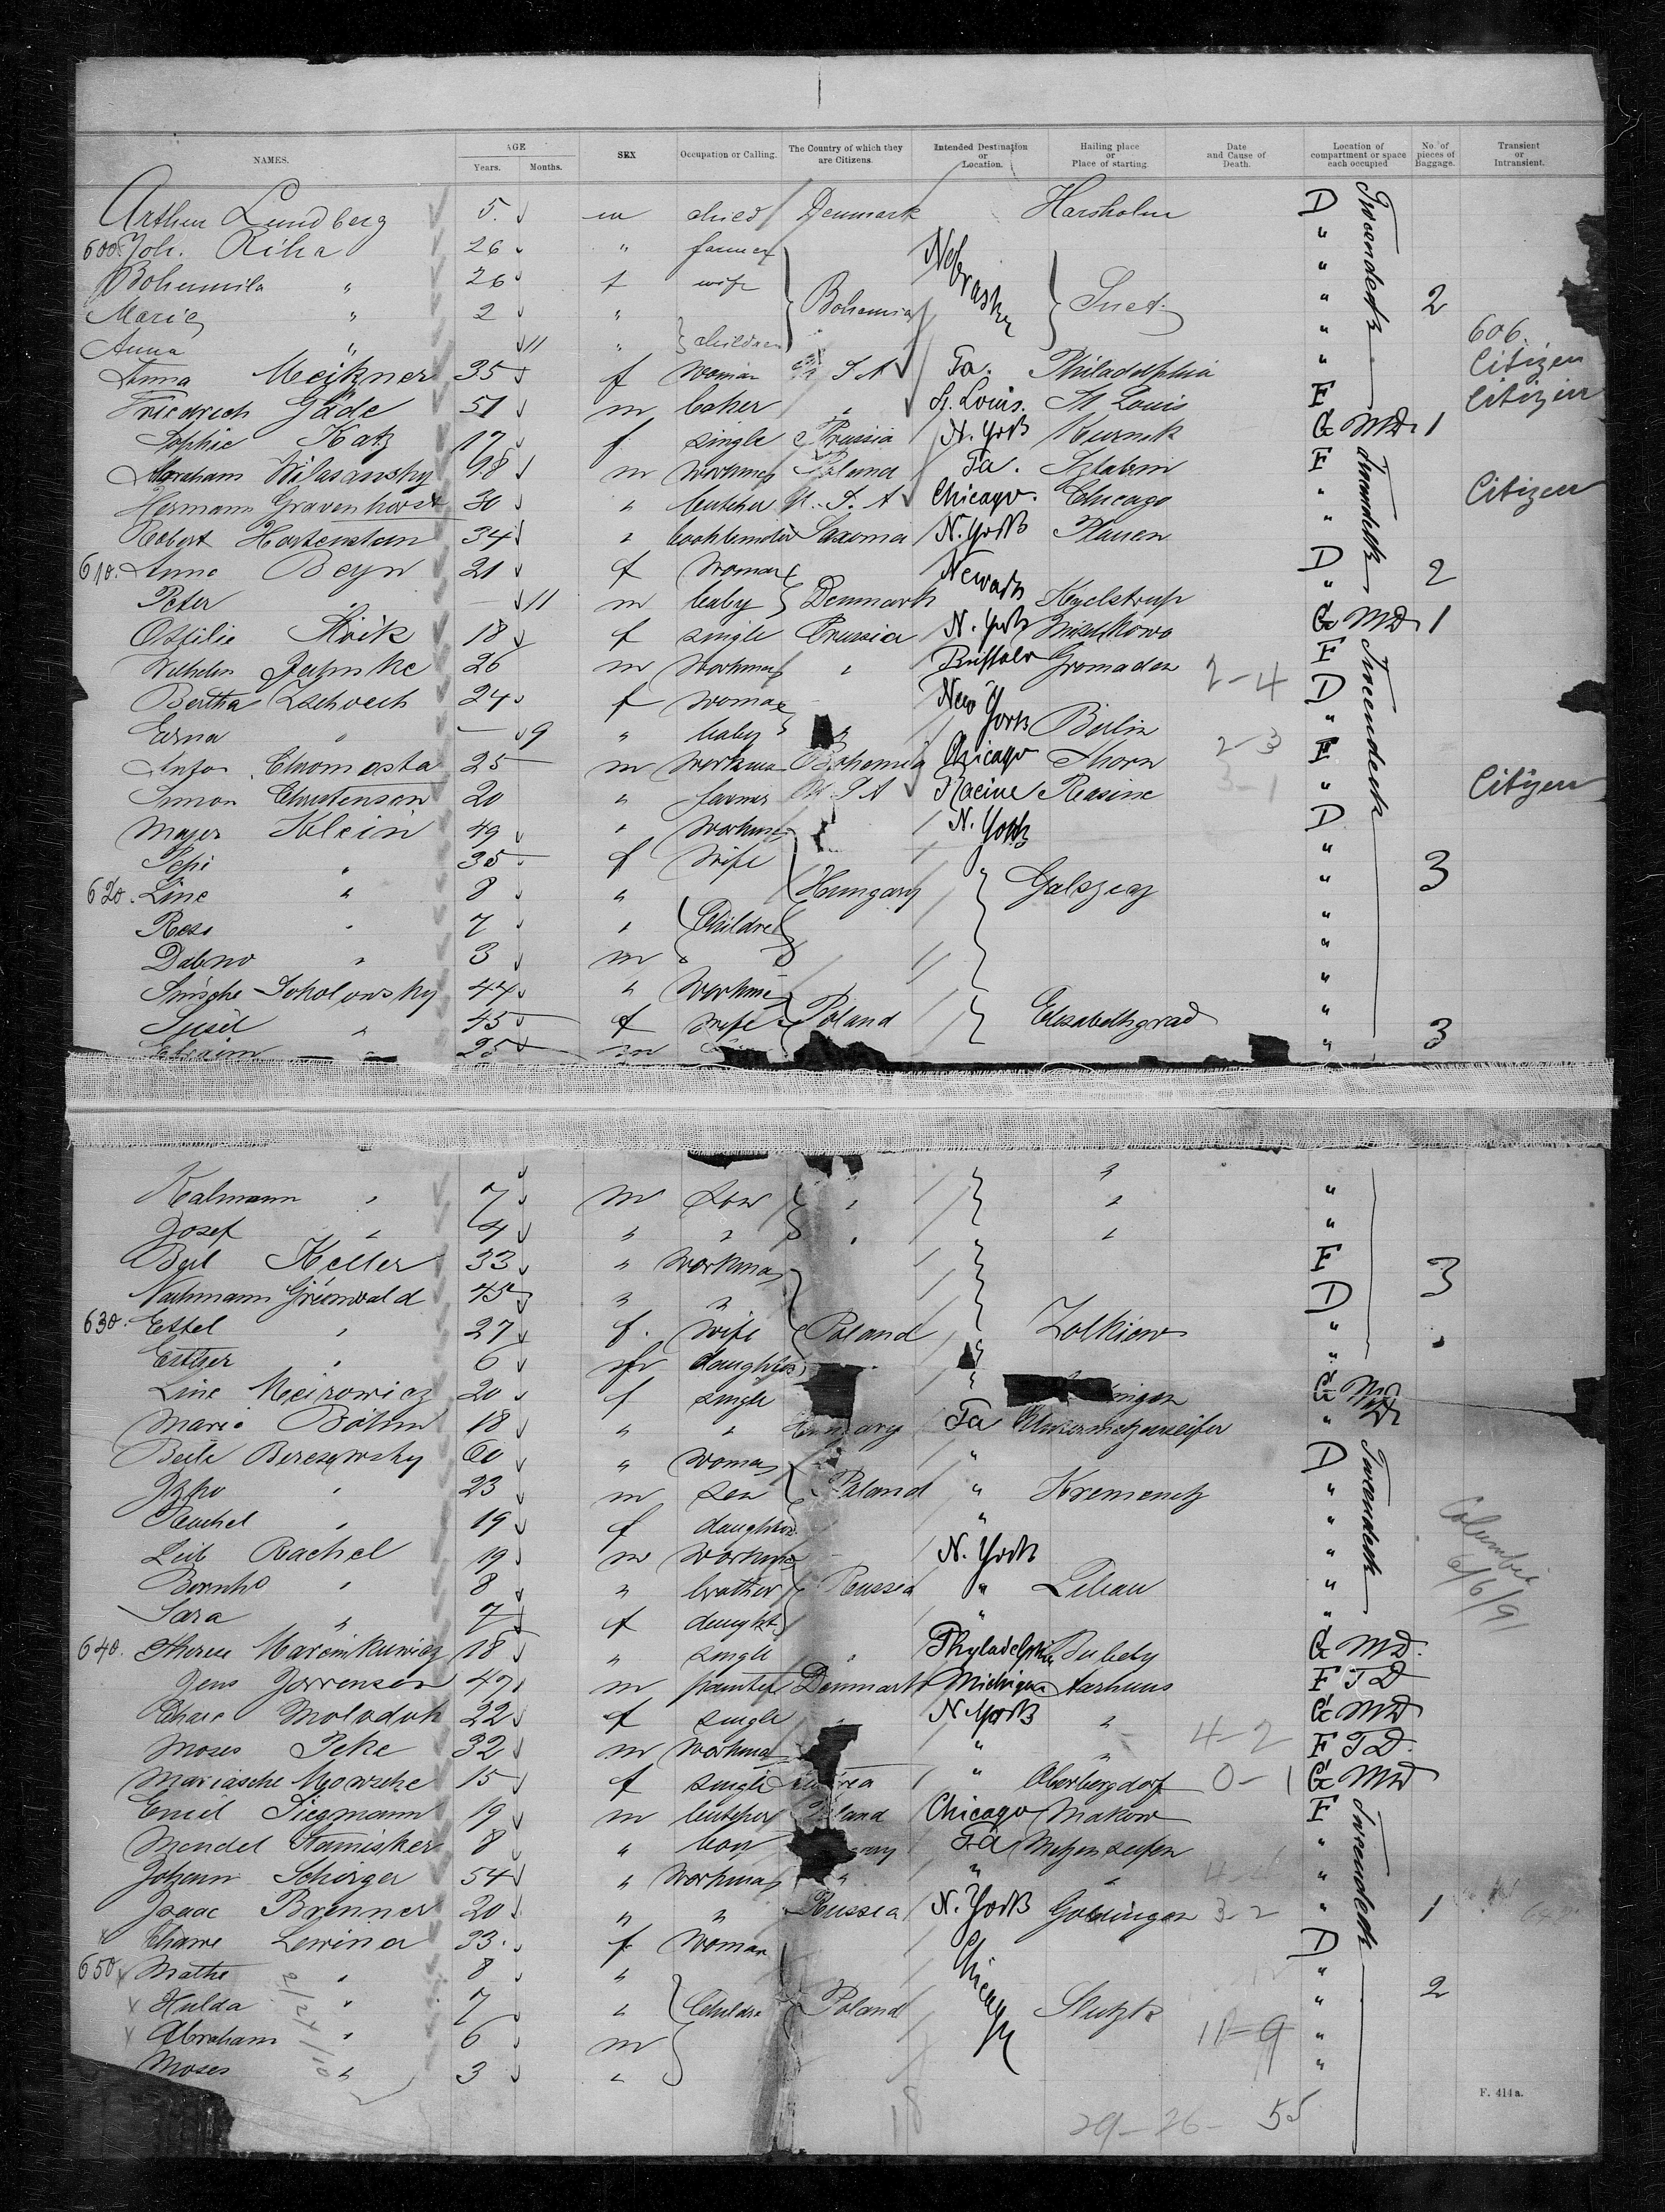 NAMES. AGE Years. Months. SEX Occupation or Calling. The Country of which they are Citizens. Intended Destination or Location. Hailing place or Place of starting. Date and Cause of Death. Location of compartment or space each occupied No. of pieces of Baggage. Transient or Intransient.
Arthur Lundberg 5 m child Denmark Harsholm D Tweendeck
600 Joh. Riha 26 " farmer "
Bohumila " 26 f wife Nebraska "
Marie " 2 " Bohemia " 2
Anna " 11 " children " 606.
Anna Meixner 35 f woman U S A Pa. Philadelphia " Citizen
Friedrich Gäde 51 m baker " St. Louis. St Louis F Citizen
Sophie Katz 17 f single Prussia N. York Kurnik G MD 1
Abraham Wilasansky 48 m workman Poland Pa. F Tweendeck
Hermann Gravenhorst 30 " butcher U. S. A Chicago. Chicago " Citizen
Robert Hartenstein 34 " bookbinder Saxonia N. York Plauen "
610. Anna Beyn 21 f woman Newark D 2
Peter " 11 m baby Denmark Kjelstrup "
Ottilie 18 f single Prussia N. York G MD 1
Wilhelm Jahnke 26 m workman " Buffalo Gromaden 2-4 F Tweendeck
Bertha Zschoech 24 f woman New York D
Erna " 9 " baby " Berlin "
Anton Chromasta 25 m workman Bohemia Chicago Thorn 2-3 F
Simon Christensen 20 " farmer U S A Racine Racine 3-1 " Citizen
Majer Klein 49 " workman N. York D
Pepi " 35 f wife " 3
620. Line " 8 " Hungary Galszecz "
Rosa " 7 " Children "
3 m "
Sokolowsky 44 " workman "
45 f wife Poland Elisabethgrad "
Efraim 25 m " 3
Kalmann " 7 m son " " "
Josef " 4 " " " " "
Keller 33 " workman F 3
Nachmann Grünwald 45 " " D
630. Ettel " 27 f. wife Poland Zolkiow "
Esther " 6 daughter "
Line Meirowicz 20 f single G MD
Marie Böhm 18 " " Hungary Pa "
Beile 60 " woman " D Tweendeck
" 23 m son Poland " Kremenetz "
" 19 f daughter " "
Leib Rachel 19 m workman N. York "
" 8 " brother Russia " Libau "
Sara " 7 f daught. " "
640. Marcinkuwicz 18 " single " Phyladelphia G MD.
Jens Jorrensen 47 m painter Denmark Michigan Aarhuus F TD
Molodok 22 f single N York " G MD
Moses 32 m workman " " 4-2 F TD.
Mariasche 15 f single " Oberbergdorf 0-1 G MD
Emil Siegmann 19 m butcher Poland Chicago Makow F Tweendeck
Mendel 8 " boy Pa Metzenseifen "
Johann Schirger 54 " workman " " " "
Isaac Brenner 20 " " Russia N. York Goldingen 3-2 " 1
Lewina 33. f woman Chicago D
650 " 8 " " 2
Hulda " 7 " Children Poland Slutzk "
Abraham " 6 m 11-9 "
Moses " 3 " "
Columbia 6/6/91
2/24/10
18 29-26- 55
F. 414a.